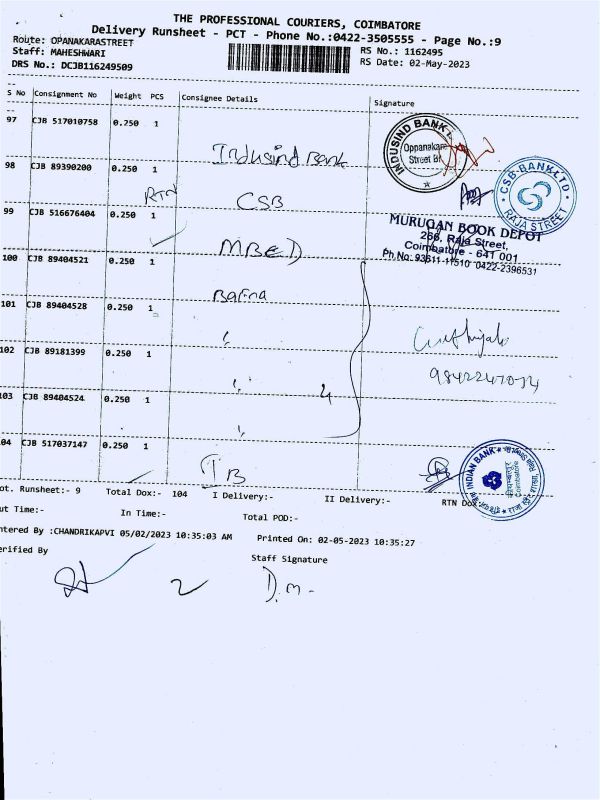 THE PROFESSIONAL COURIERS, COIMBATORE
Delivery Runsheet - PCT - Phone No.:0422-3505555 - Page No.:9
Route: OPANAKARASTREET
RS No.: 1162495
Staff: MAHESHWARI
RS Date: 02-May-2023
DRS No.: DCJB116249509
S No Consignment No Weight PCS Consignee Details Signature
97 CJB 517010758 0.250 1
IndusInd Bank
INDUSIND BANK
Oppanakara
Street Br
98 CJB 89390200 0.250 1
RTN
CSB
CSB BANK LTD
RAJA STREET
99 CJB 516676404 0.250 1
MBED
MURUGAN BOOK DEPOT
266, Raja Street,
Coimbatore - 641 001
Ph.No. 93611-11510 0422-2396531
100 CJB 89404521 0.250 1
Barna
101 CJB 89404528 0.250 1
102 CJB 89181399 0.250 1
4
03 CJB 89404524 0.250 1
04 CJB 517037147 0.250 1
IB
INDIAN BANK
Coimbatore
ot. Runsheet:- 9 Total Dox:- 104 I Delivery:- II Delivery:- RTN Dox
ut Time:- In Time:- Total POD:-
ntered By :CHANDRIKAPVI 05/02/2023 10:35:03 AM Printed On: 02-05-2023 10:35:27
erified By Staff Signature
2 D.M-